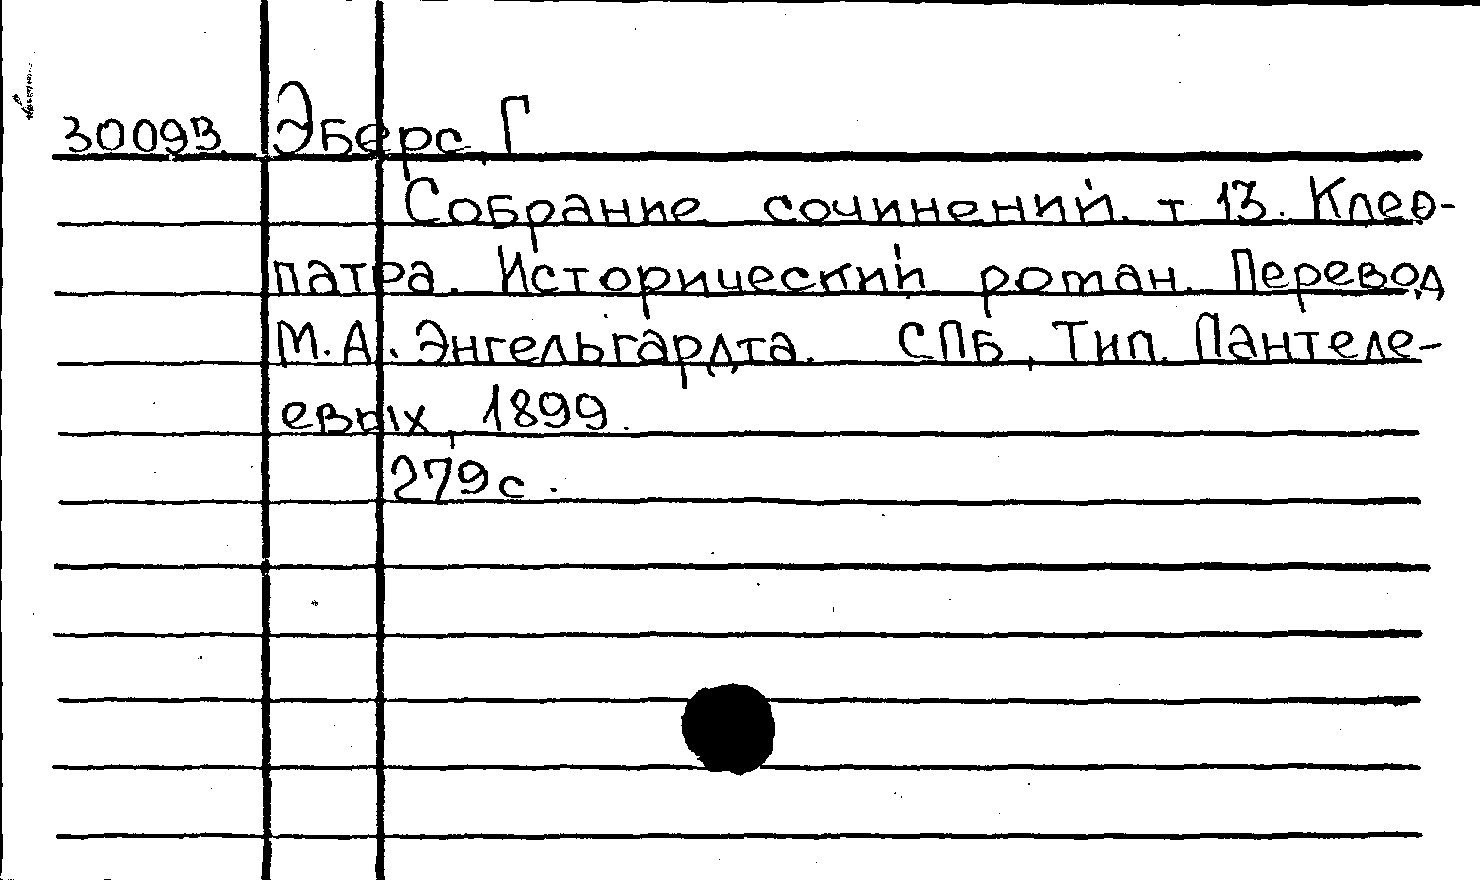 30093 Эберс, Г
Собрание сочинений. т 13. Клео-
патра. Исторический роман. Перевод
М.А. Энгельгардта. СПб, Тип. Пантеле-
евых, 1899.
279 с.